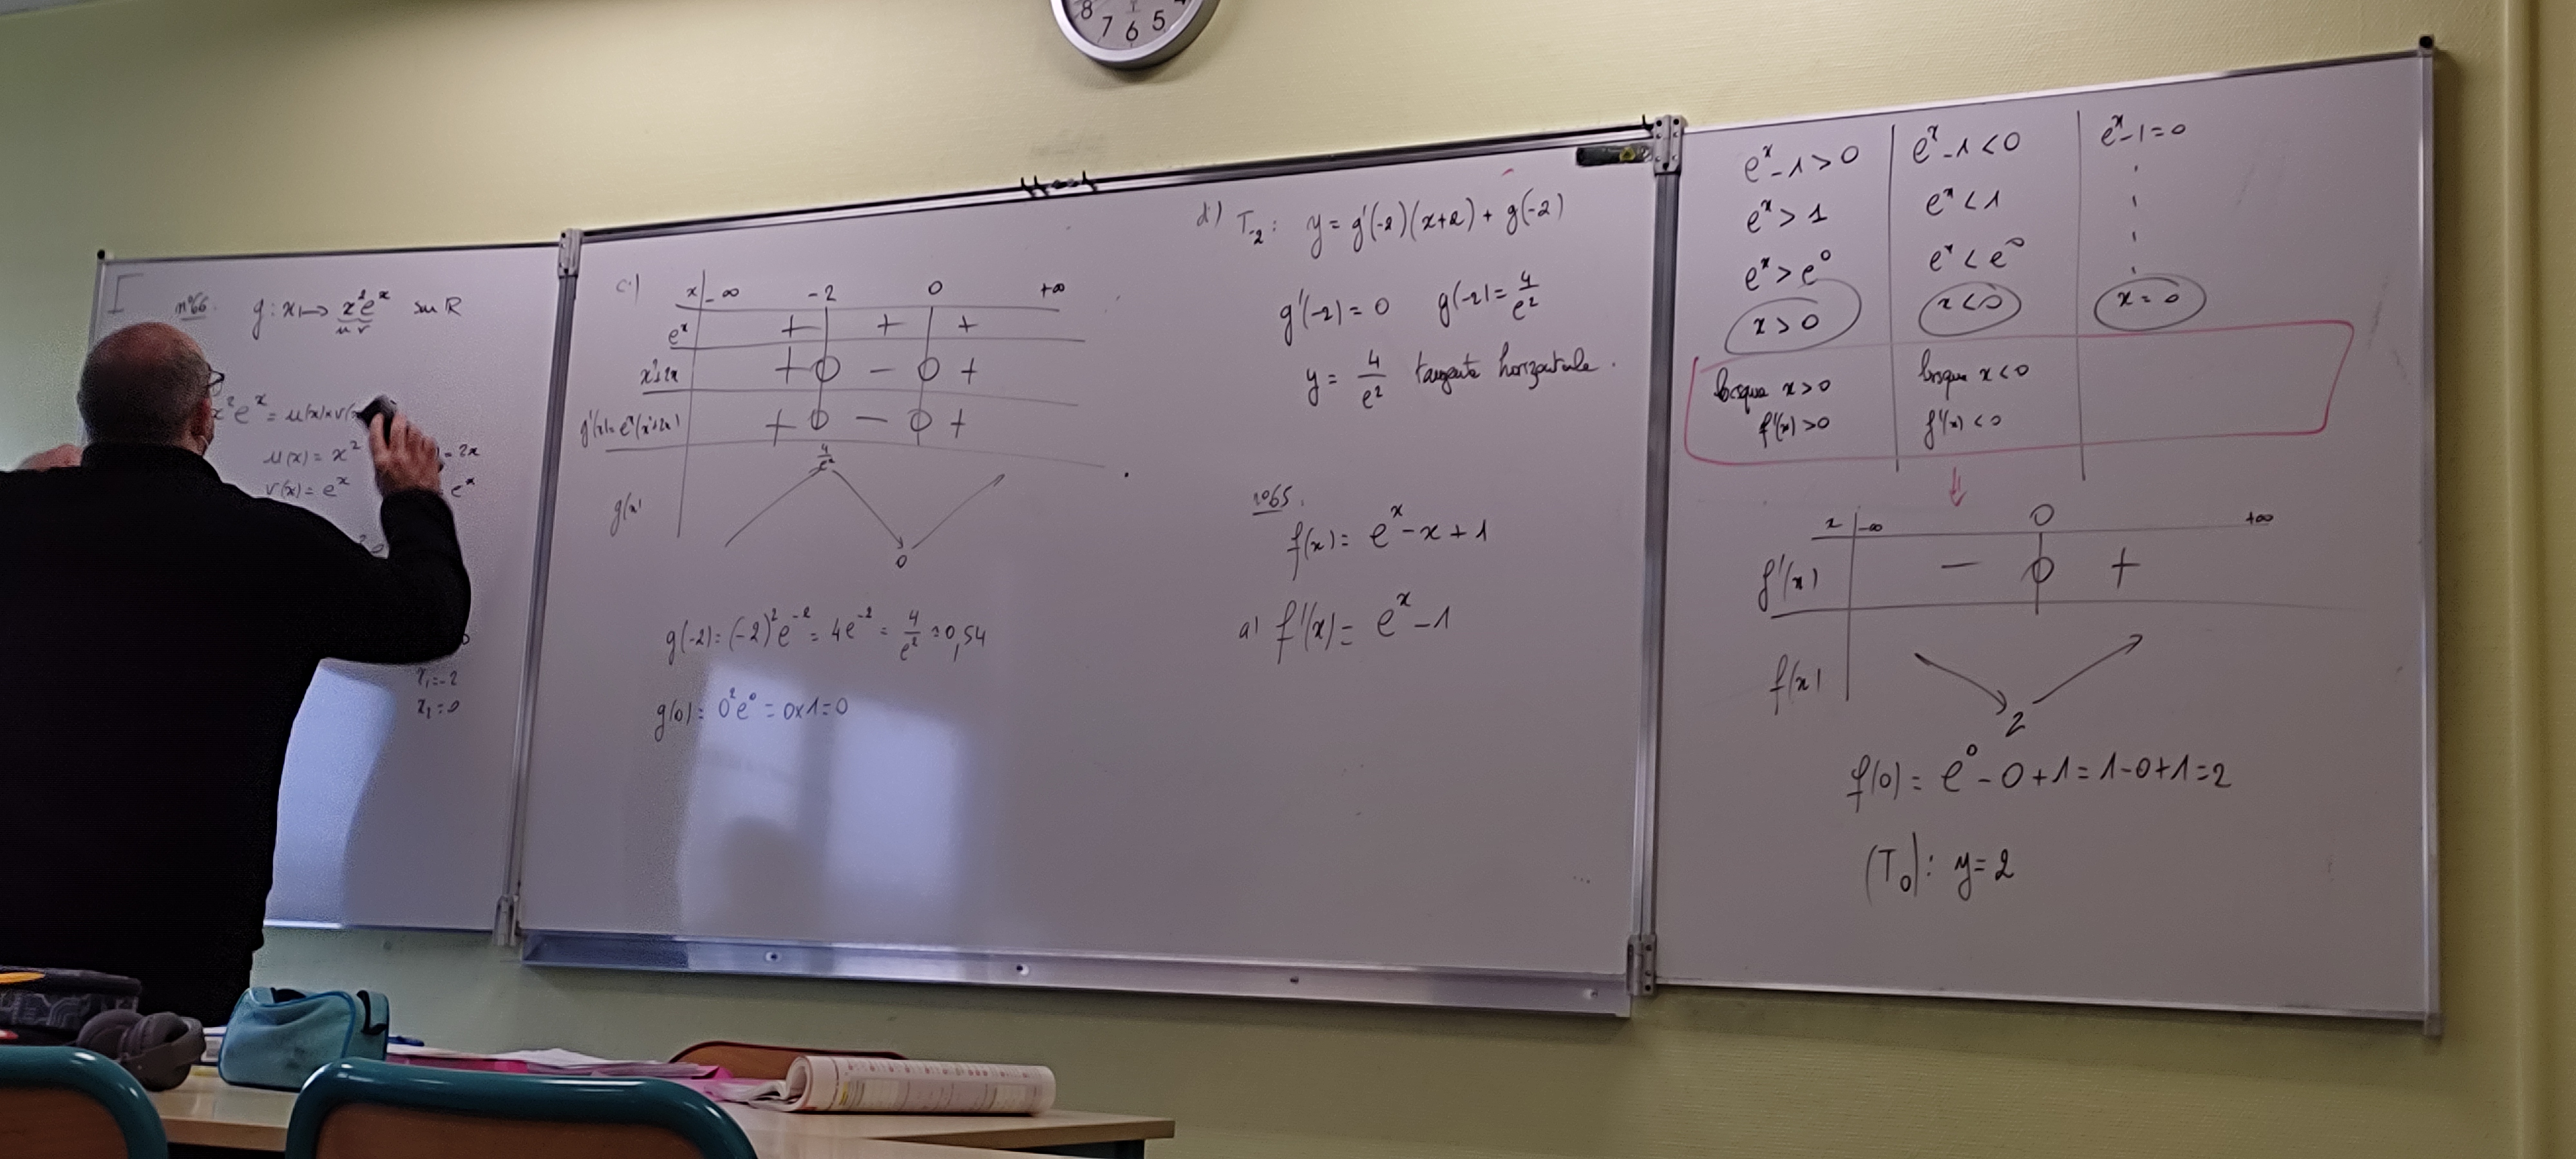 8 7 6 5
n°66. g : x ↦ x²e^x sur R
u v
x²e^x = u(x)×v(x
u(x) = x²
= 2x
v(x) = e^x
e^x
x₁ = -2
x₂ = 0
c)
x | -∞ -2 0 +∞
e^x + + +
x²+2x + 0 - 0 +
g'(x) = e^x(x²+2x) + 0 - 0 +
g(x)
4/e²
0
g(-2) = (-2)²e^-2 = 4e^-2 = 4/e² ≈ 0,54
g(0) = 0²e⁰ = 0×1 = 0
d) T₋₂ : y = g'(-2)(x+2) + g(-2)
g'(-2) = 0 g(-2) = 4/e²
y = 4/e² tangente horizontale.
n°65.
f(x) = e^x - x + 1
a) f'(x) = e^x - 1
e^x - 1 > 0
e^x > 1
e^x > e⁰
x > 0
lorsque x > 0
f'(x) > 0
e^x - 1 < 0
e^x < 1
e^x < e⁰
x < 0
lorsque x < 0
f'(x) < 0
e^x - 1 = 0
x = 0
x | -∞ 0 +∞
f'(x) - 0 +
f(x)
2
f(0) = e⁰ - 0 + 1 = 1 - 0 + 1 = 2
(T₀) : y = 2